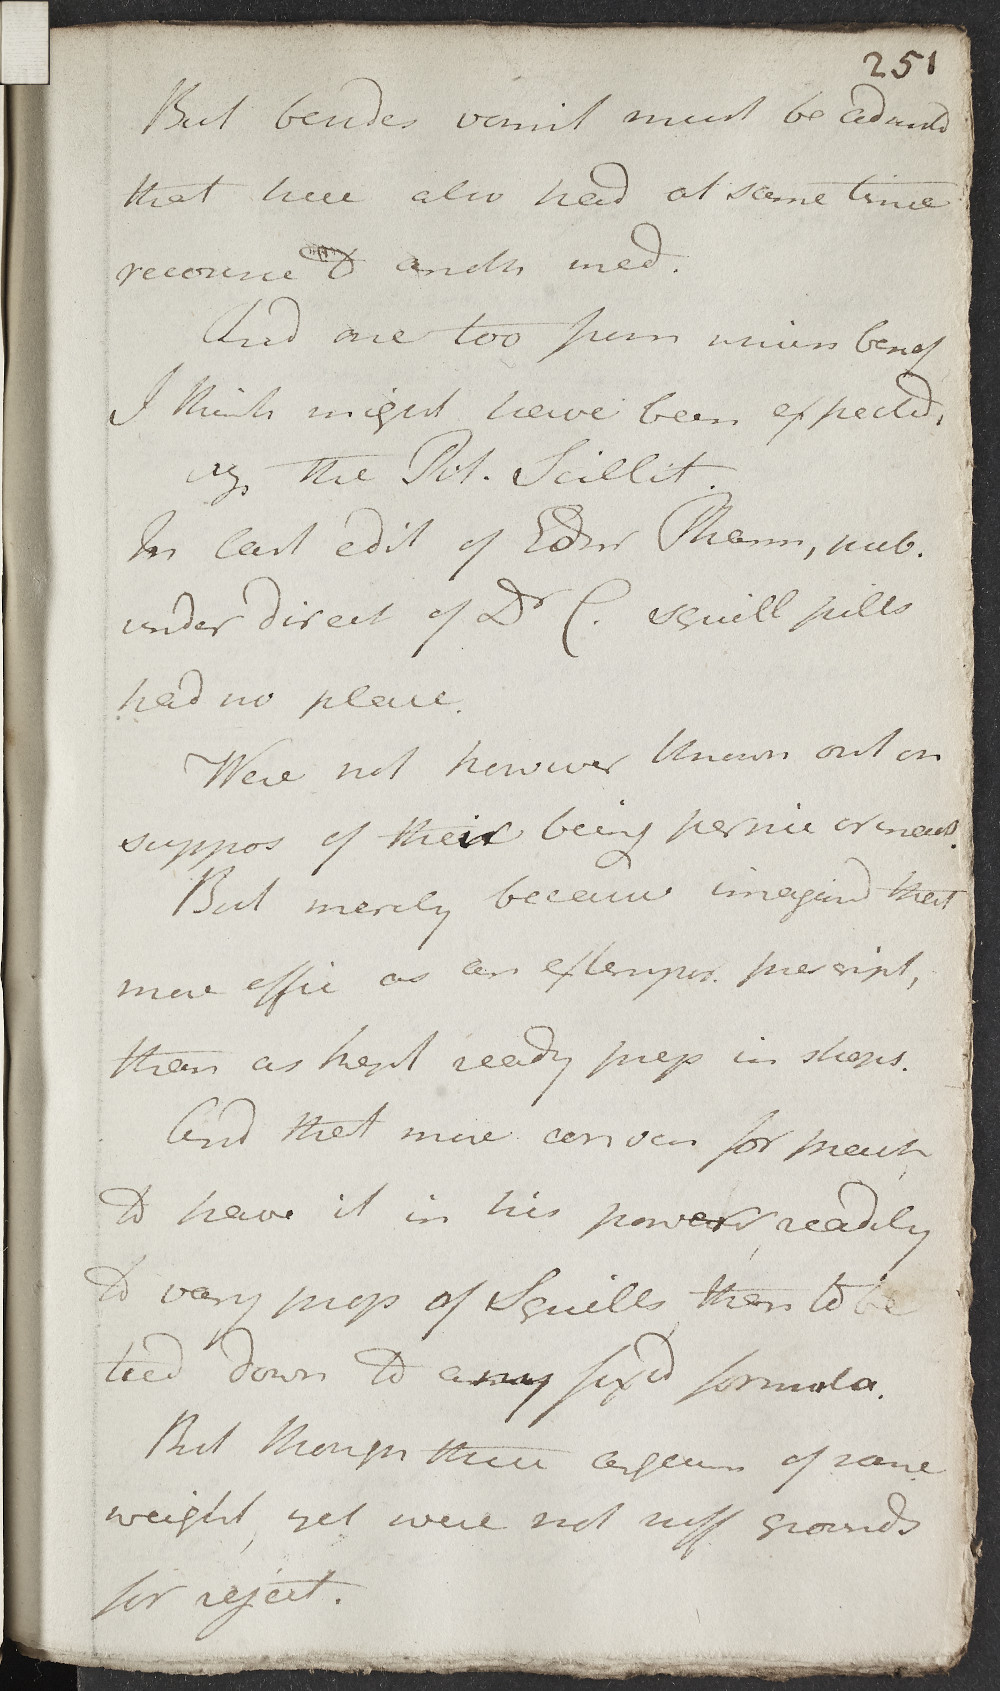 251
But besides vomit must be admitd
that here also had at same time
recourse to anoth med.
And one too from which benef
I think might have been expected,
vz. the Pil. Scillit.
In last edit of Edinr Pharm, pub.
under direct of Dr C. squill pills
had no place.
Were not however thrown out on
suppos of their being pernic or
But merely because imagind that
more effic as an extempor. prescript,
than as kept ready prep in shops.
And that more conven for pract
to have it in his power readily
to vary prep of Squills than to be
tied down to any fixd formula.
But though these argum of some
weight, yet were not suff grounds
for reject.